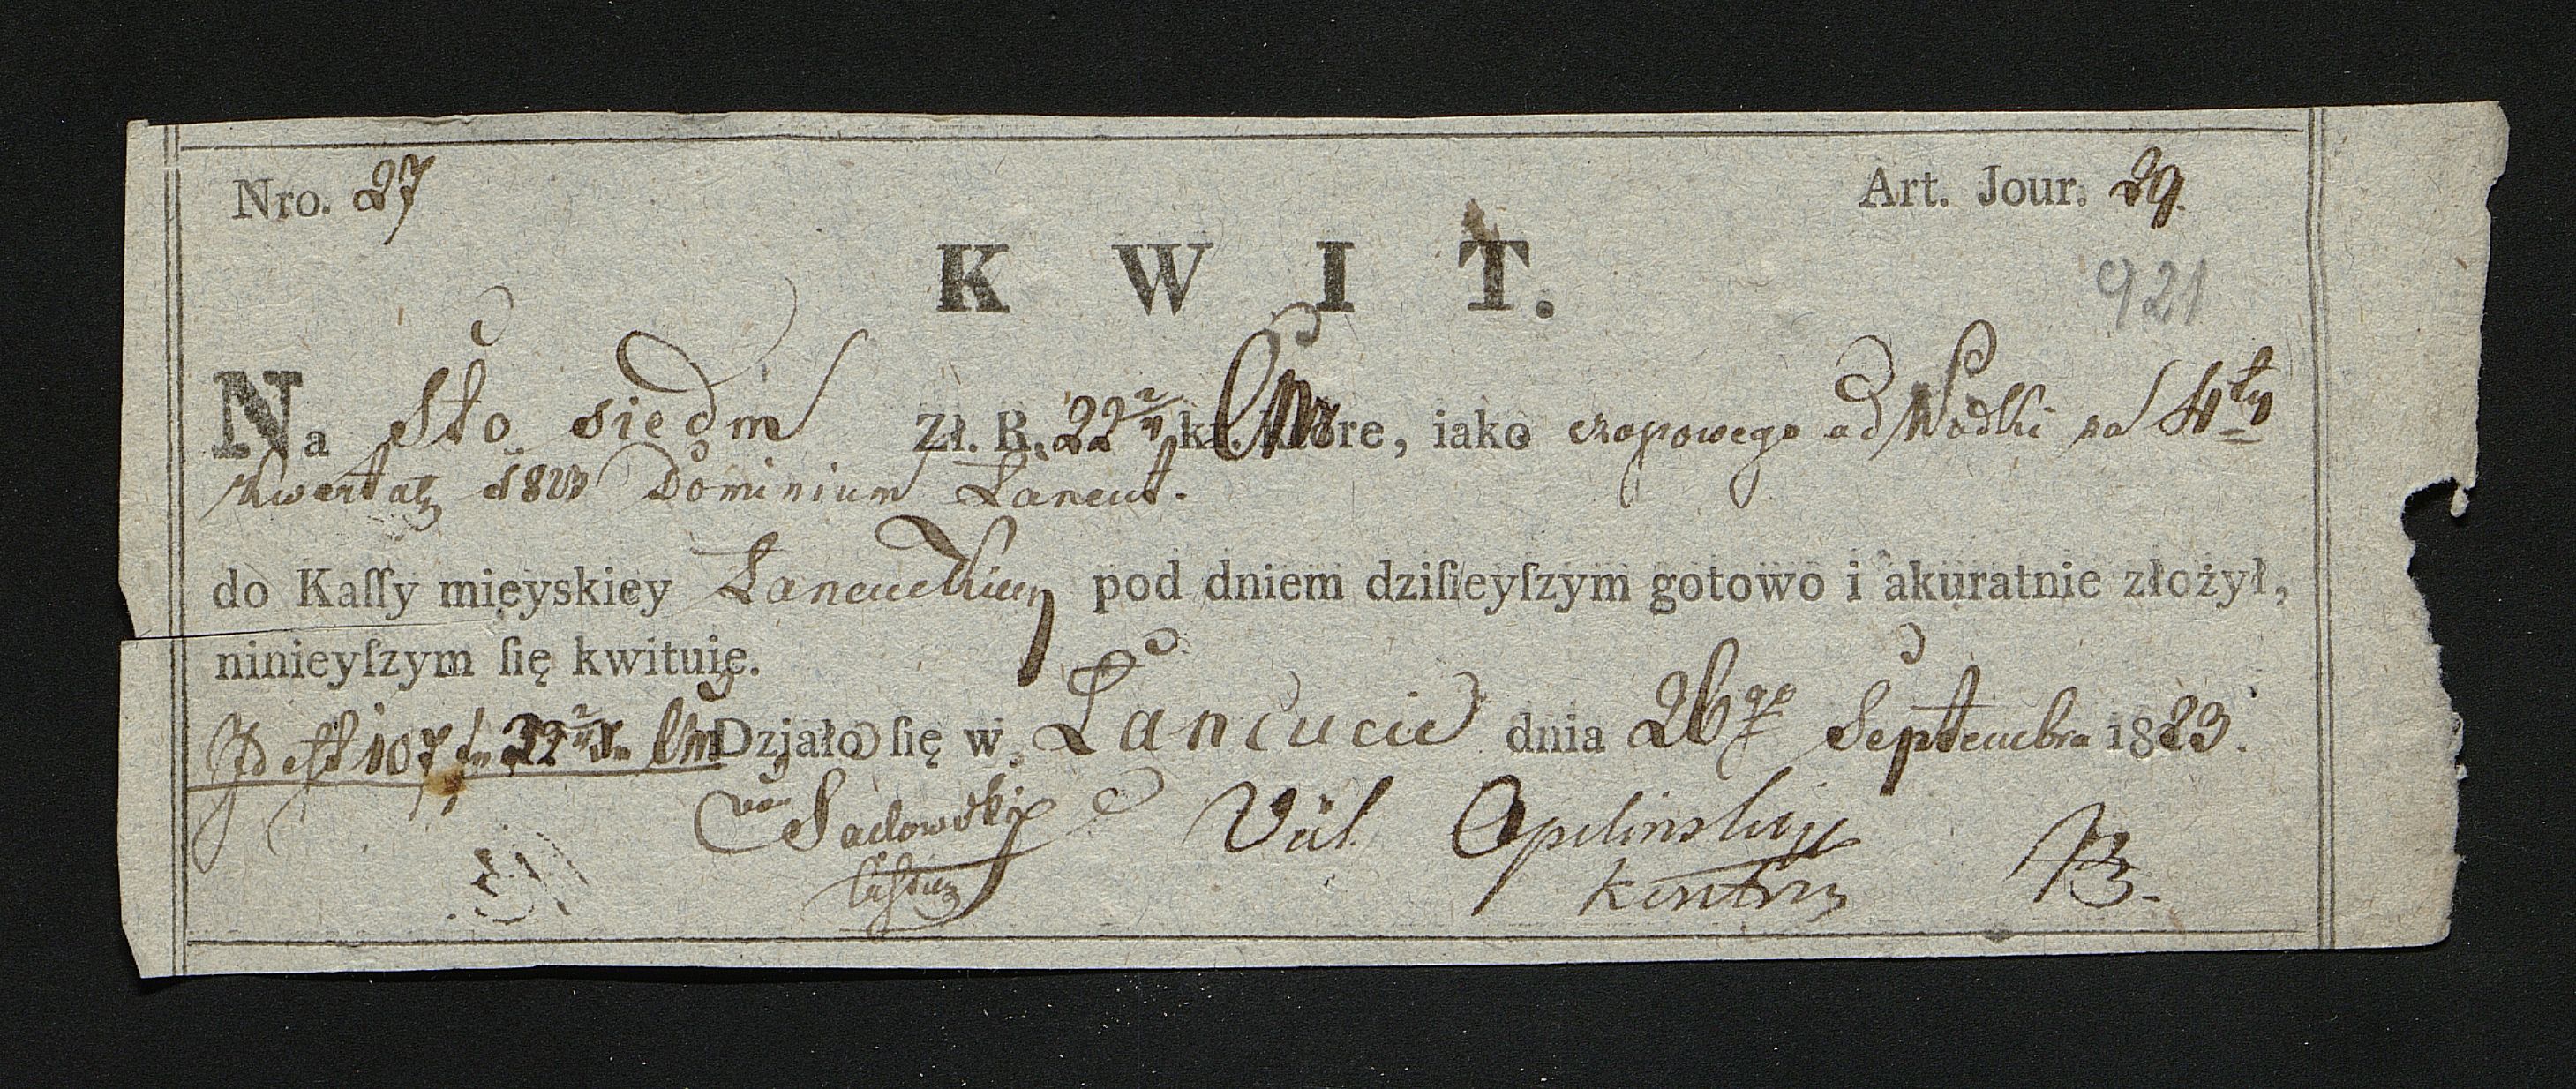 Nro. 27 Art. Jour. 29.
KWIT.
921
Na Sto siedm Zł. R. 22 2/4 kr. CM które, iako czopowego od Wodki za 4ty
kwertał 1823 Dominium Lancut.
do Kaſſy mieyskiey Lancuckiey pod dniem dziſieyſzym gotowo i akuratnie złożył,
ninieyſzym ſię kwituię.
Id est 107 22 2/4 CM Działo ſię w Lancucie dnia 26go Septembra 1823.
Sadowski Opelinskiy
Kontrr